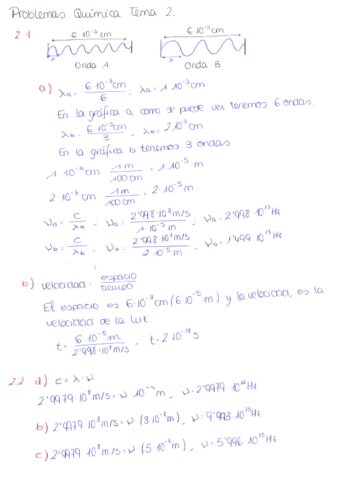 Problemas Química Tema 2.
2.1
6·10⁻³cm 6·10⁻³cm
Onda A Onda B
a) λa = 6·10⁻³cm / 6 . λa = 1·10⁻³cm
En la gráfica a como se puede ver tenemos 6 ondas.
λb = 6·10⁻³cm / 3 . λb = 2·10⁻³cm
En la gráfica b tenemos 3 ondas
1·10⁻³cm 1m / 100cm = 1·10⁻⁵m
2·10⁻³cm 1m / 100cm = 2·10⁻⁵m
νa = c / λa . νa = 2'998·10⁸m/s / 1·10⁻⁵m . νa = 2'998·10¹³Hz
νb = c / λb . νb = 2'998·10⁸m/s / 2·10⁻⁵m . νb = 1'499·10¹³Hz
b) velocidad = espacio / tiempo
El espacio es 6·10⁻³cm (6·10⁻⁵m) y la velocidad, es la
velocidad de la luz
t = 6·10⁻⁵m / 2'998·10⁸m/s . t = 2·10⁻¹³s
2.2 a) c = λ·ν
2'9979·10⁸m/s = ν
b) 2'9979·10⁸m/s = ν
c) 2'9979·10⁸m/s = ν